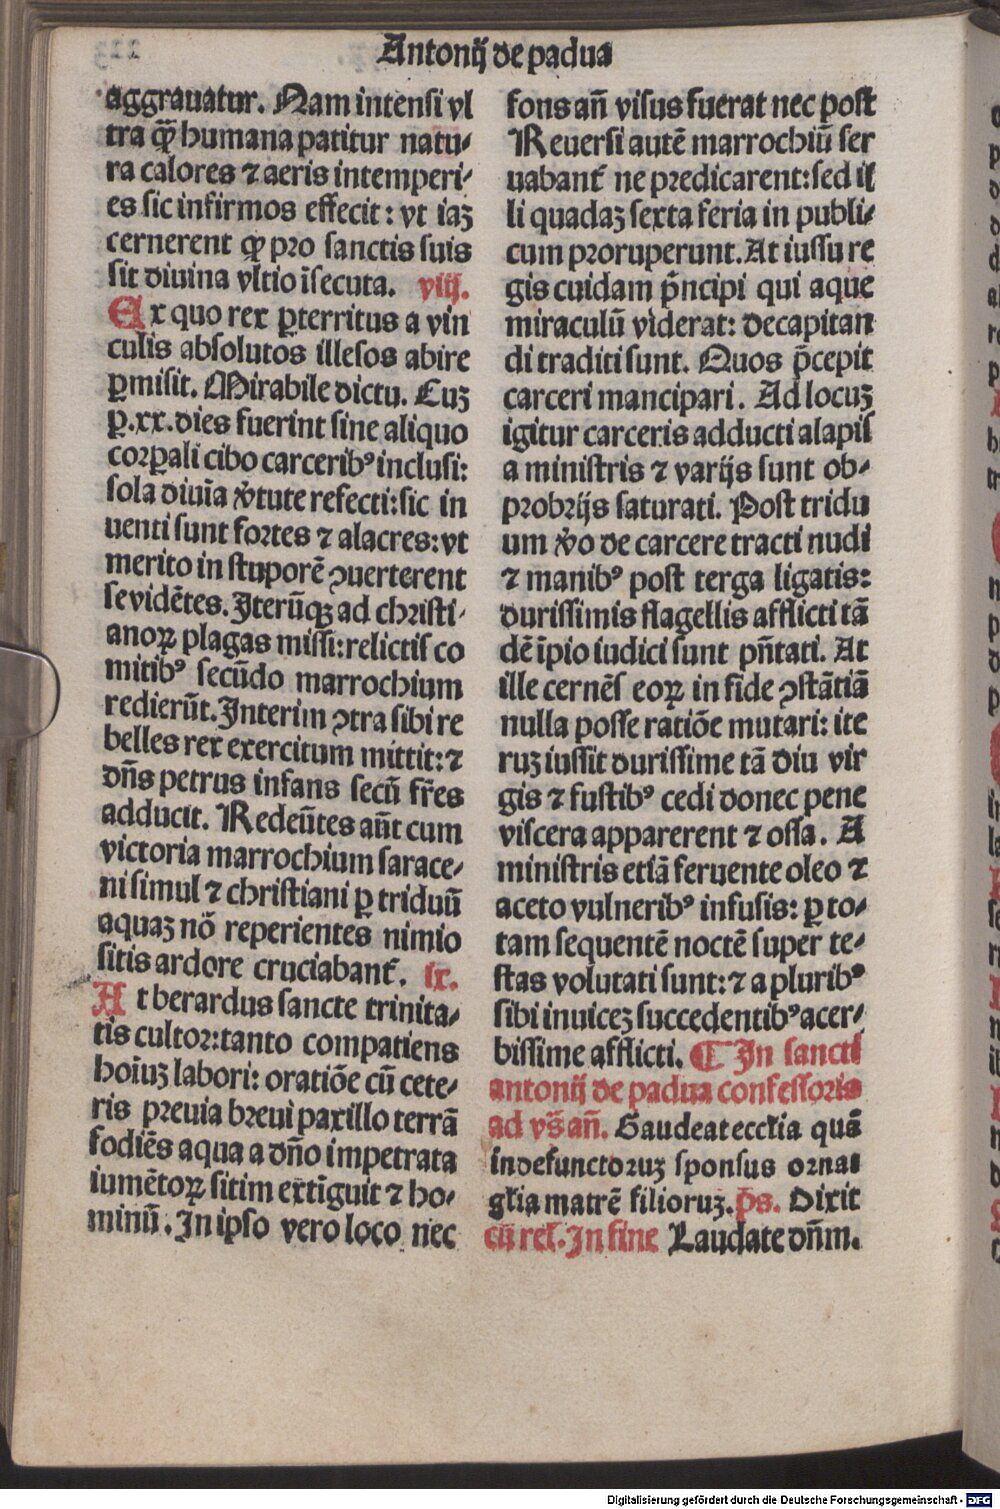 Antonij de padua
aggrauatur. Nam intensi vl
tra qꝫ̃ humana patitur natu⸗
ra calores ⁊ aeris intemperi⸗
es sic infirmos effecit: vt iaꝫ
cernerent ꝙ pro sanctis suis
sit diuina vltio ĩsecuta. viij.
Ex quo rex ꝑterritus a vin
culis absolutos illesos abire
ꝑmisit. Mirabile dictu. Cuꝫ
ꝑ.xx.dies fuerint sine aliquo
corꝑali cibo carceribꝰ inclusi:
sola diuĩa v̾tute refecti:sic in
uenti sunt fortes ⁊ alacres:vt
merito in stuporẽ ꝯuerterent
se vidẽtes. Iterũqꝫ ad christi⸗
anoꝝ plagas missi:relictis co
mitibꝰ secũdo marrochium
redierũt. Interim ꝯtra sibi re
belles rex exercitum mittit: ⁊
dñs petrus infans secũ fr̃es
adducit. Redeũtes añt cum
victoria marrochium sarace⸗
ni simul ⁊ christiani ꝑ triduũ
aquaꝫ nõ reperientes nimio
sitis ardore cruciabant̃. ix.
At berardus sancte trinita⸗
tis cultor:tanto compatiens
hoĩuꝫ labori: oratiõe cũ cete⸗
ris preuia breui paxillo terrã
fodiẽs aqua a dño impetrata
iumẽtoꝝ sitim extĩguit ⁊ ho⸗
minũ. In ipso vero loco nec
fons añ visus fuerat nec post
Reuersi autẽ marrochiũ ser
uabant̃ ne predicarent:sed il
li quadaꝫ sexta feria in publi⸗
cum proruperunt. At iussu re
gis cuidam p̃ncipi qui aque
miraculũ viderat: decapitan
di traditi sunt. Quos p̃cepit
carceri mancipari. Ad locuꝫ
igitur carceris adducti alapis
a ministris ⁊ varijs sunt ob⸗
probrijs saturati. Post tridu
um v̾o de carcere tracti nudi
⁊ manibꝰ post terga ligatis:
durissimis flagellis afflicti tã
dẽ ĩpio iudici sunt pñtati. At
ille cernẽs eoꝝ in fide ꝯstãtiã
nulla posse ratiõe mutari: ite
ruꝫ iussit durissime tã diu vir
gis ⁊ fustibꝰ cedi donec pene
viscera apparerent ⁊ ossa. A
ministris etiã feruente oleo ⁊
aceto vulneribꝰ infusis: ꝑ to⸗
tam sequentẽ noctẽ super te⸗
stas volutati sunt: ⁊ a pluribꝰ
sibi inuiceꝫ succedentibꝰ acer⸗
bissime afflicti. ¶ In sancti
antonij de padua confessoris
ad vs̃ añ. Gaudeat eccl̃ia quã
in defunctoruꝫ sponsus ornat
gl̃ia matrẽ filioruꝫ. p̃s. Dixit
cũ rel̃. In fine Laudate dñm.
Digitalisierung gefördert durch die Deutsche Forschungsgemeinschaft - DFG